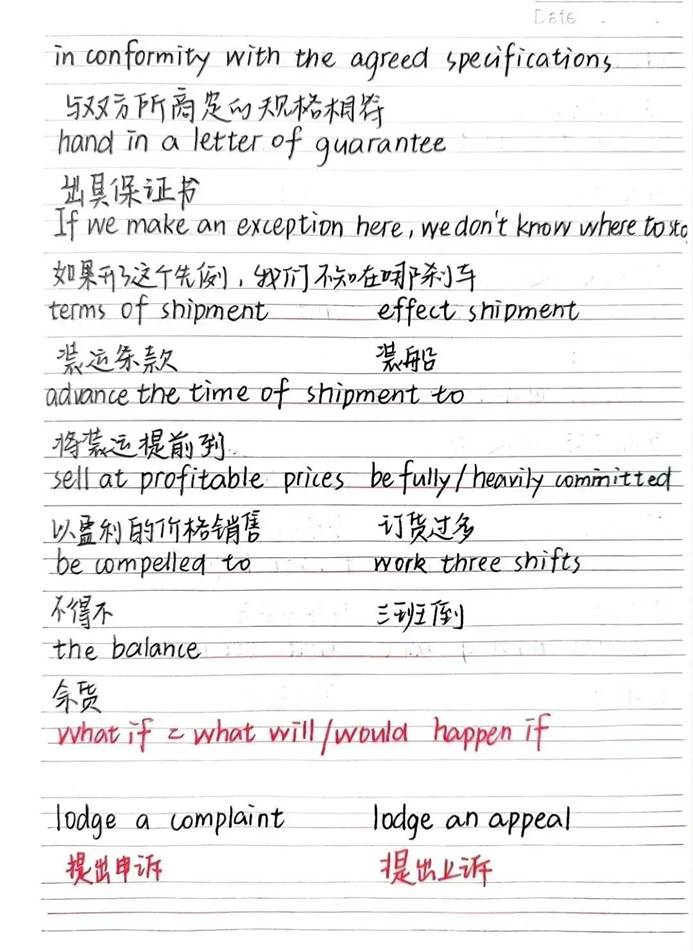 Date . .
in conformity with the agreed specifications
与双方所商定的规格相符
hand in a letter of guarantee
出具保证书
If we make an exception here, we don't know where to sto
如果开了这个先例，我们不知在哪刹车
terms of shipment effect shipment
装运条款 装船
advance the time of shipment to
将装运提前到…
sell at profitable prices be fully/heavily committed
以盈利的价格销售 订货过多
be compelled to work three shifts
不得不 三班倒
the balance
余货
what if = what will/would happen if
lodge a complaint lodge an appeal
提出申诉 提出上诉